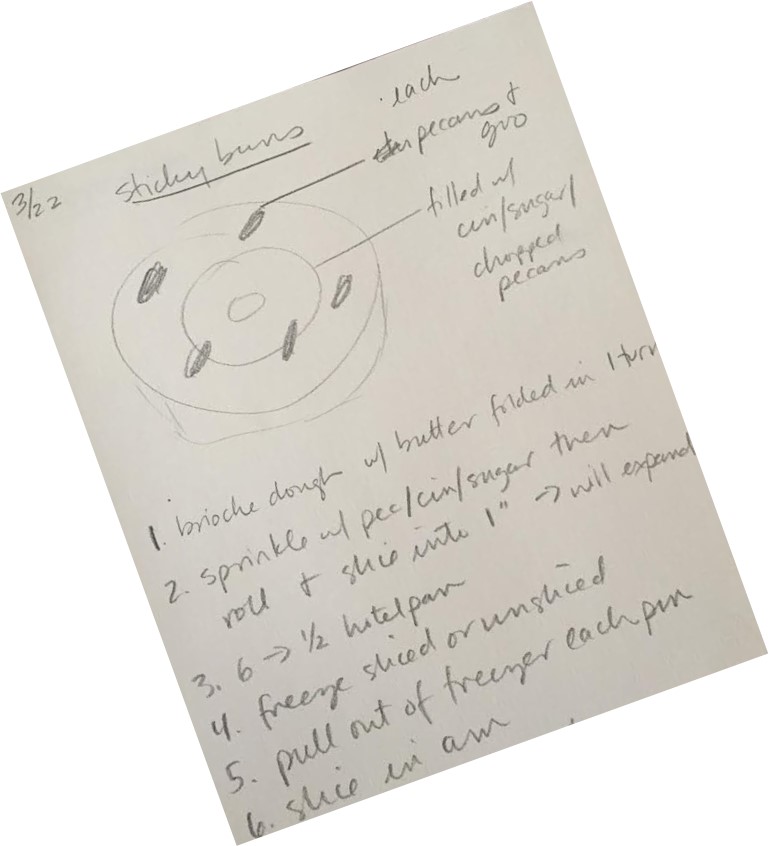 3/22
sticky buns
each
pecans +
goo
filled w/
cin/sugar/
chopped
pecans
1. brioche dough w/ butter folded in 1 turn
2. sprinkle w/ pec/cin/sugar then
roll + slice into 1" → will expand
3. 6 → 1/2 hotel pan
4. freeze sliced or unsliced
5. pull out of freezer each pm
6. slice in am